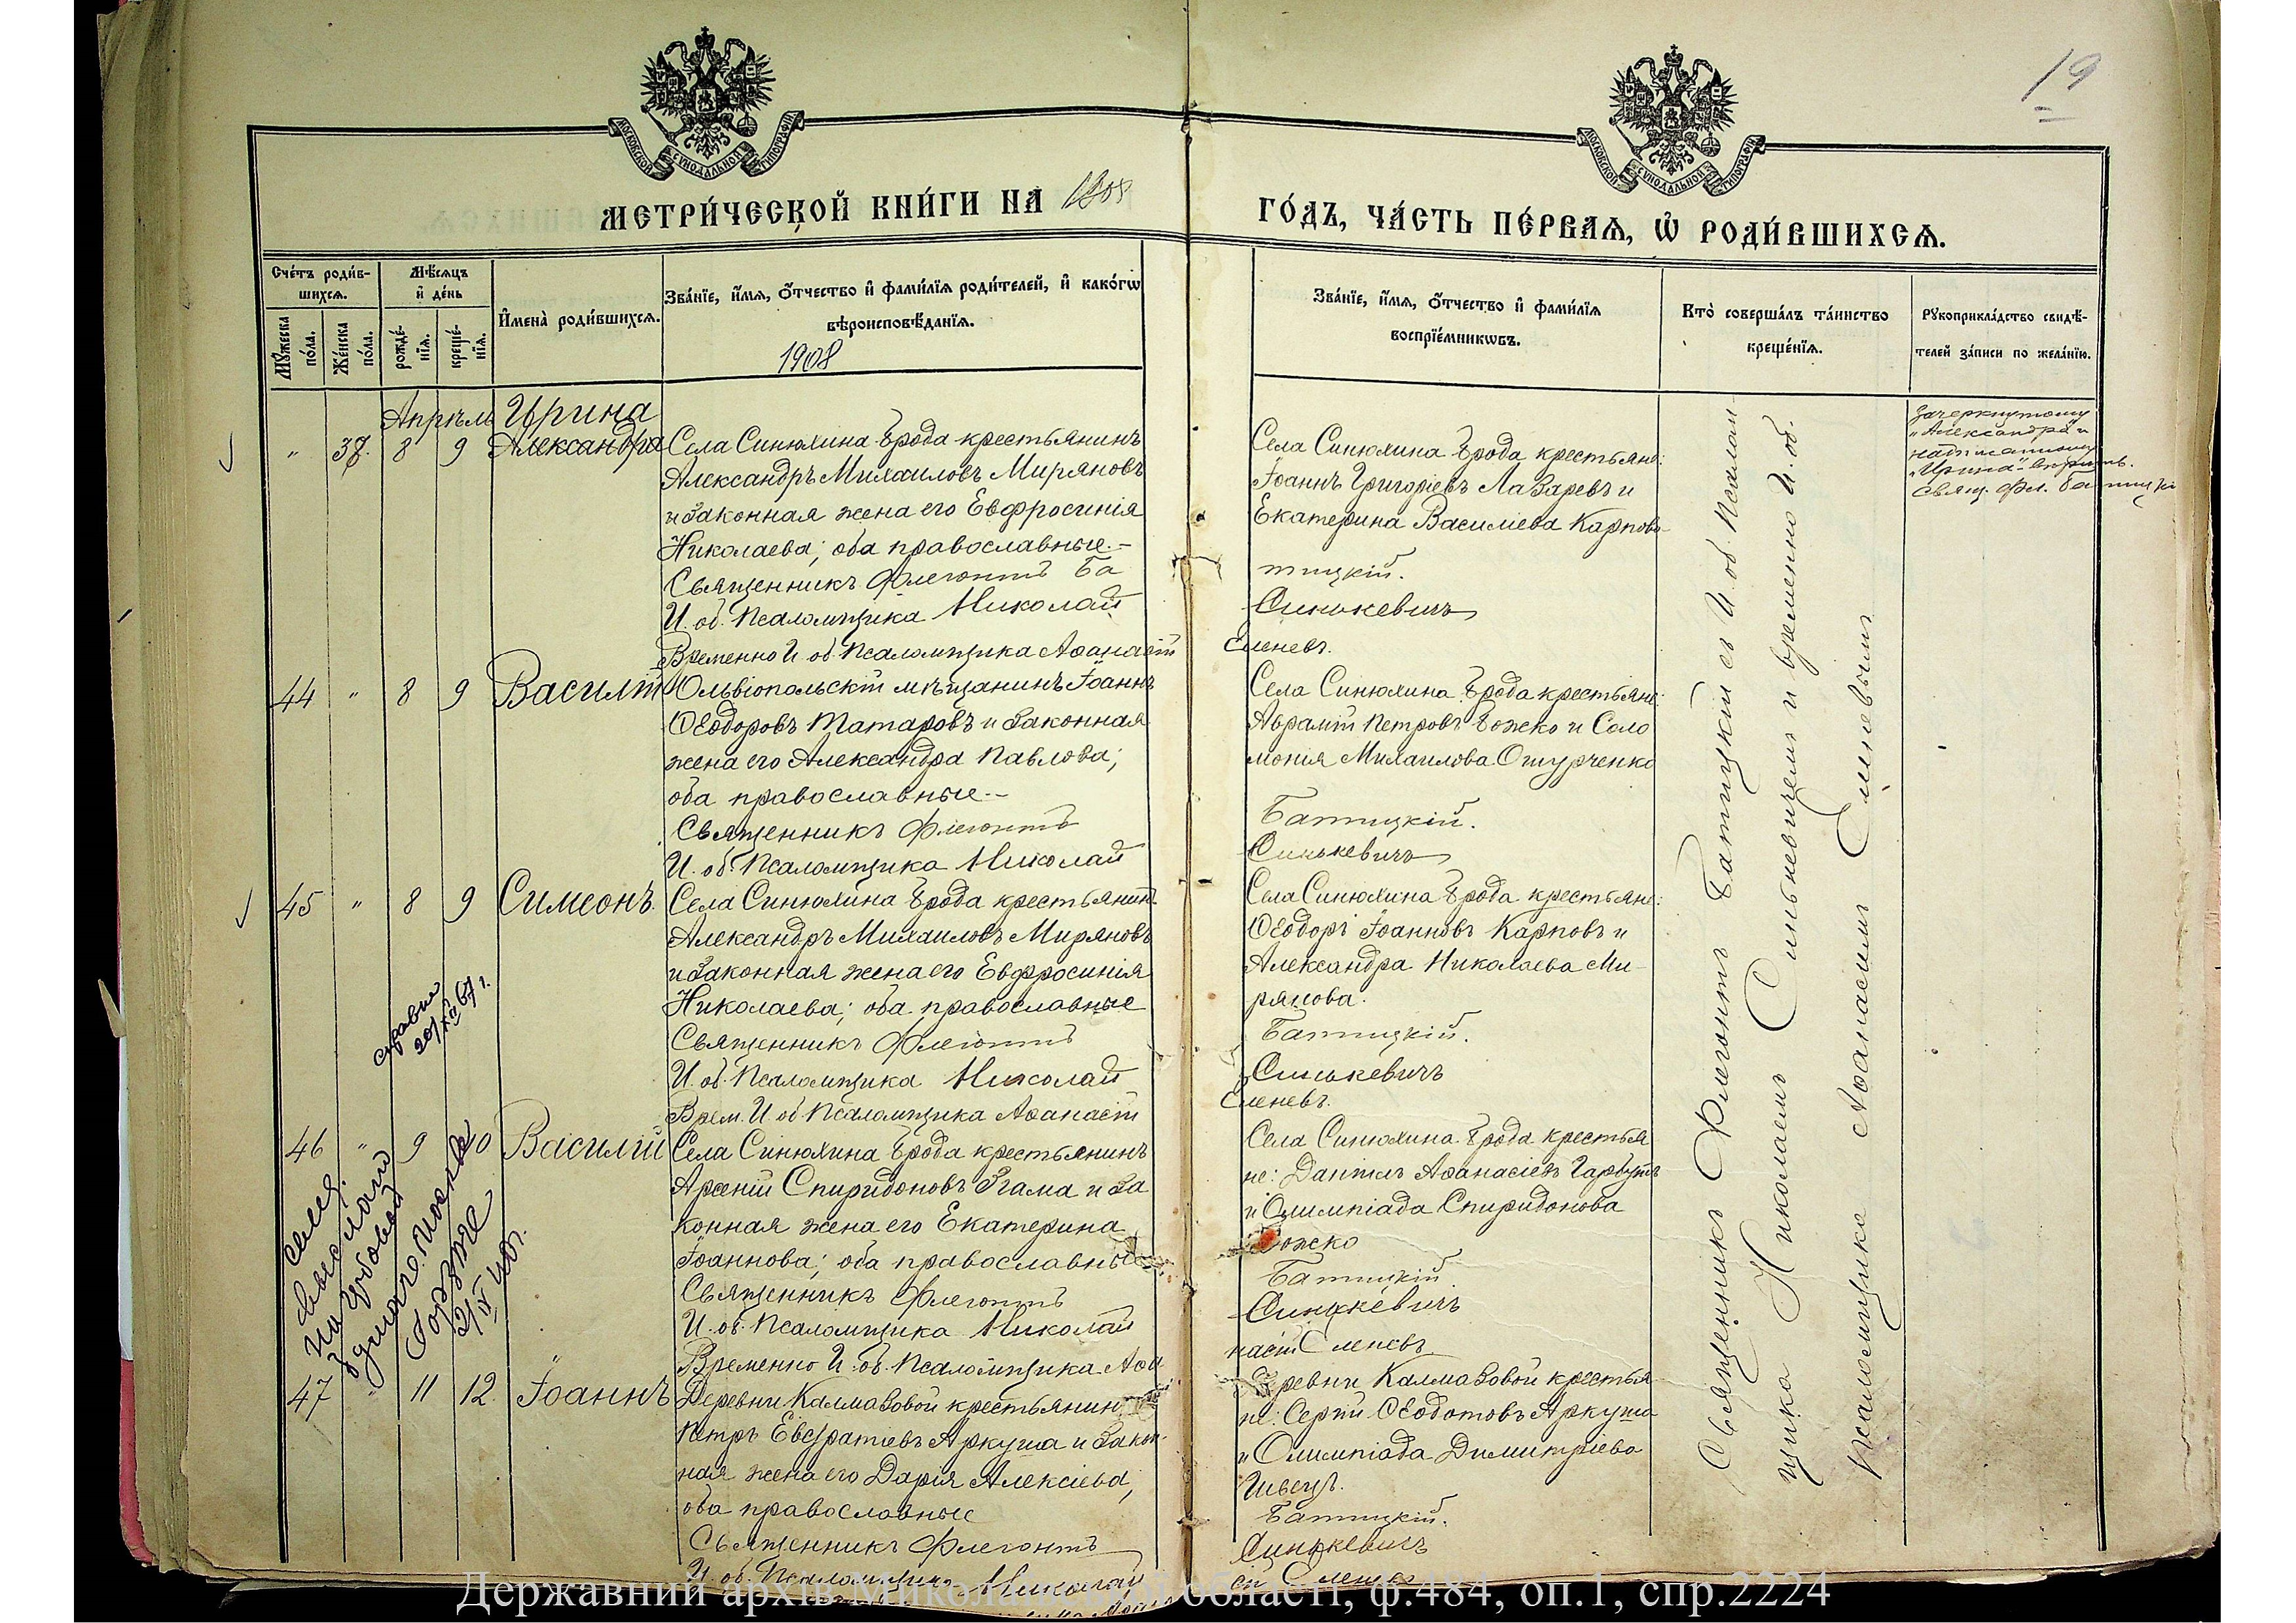 19
МОСКОВСКОЙ СѴНОДАЛЬНОЙ ТИПОГРАФІИ
МОСКОВСКОЙ СѴНОДАЛЬНОЙ ТИПОГРАФІИ
МЕТРИ́ЧЕСКОЙ КНИ́ГИ НА 1908
ГО́ДЪ, ЧА́СТЬ ПЕ́РВАѦ, Ѡ҆ РОДИ́ВШИХСѦ.
Сче́тъ роди́в-
шихсѧ.
Мꙋжеска
по́ла.
Же́нска
по́ла.
Мѣ́сѧцъ
и҆ де́нь
рожде́-
нїѧ.
креще́-
нїѧ.
И҆мена̀ роди́вшихсѧ.
Зва́нїе, и҆́мѧ, ѻ҆́тчество и҆ фами́лїѧ роди́телей, и҆ како́гѡ
вѣроисповѣ́данїѧ.
1908
Зва́нїе, и҆́мѧ, ѻ҆́тчество и҆ фами́лїѧ
воспрїе́мникѡвъ.
Кто̀ соверша́лъ та́инство
креще́нїѧ.
Рꙋкоприкла́дство свидѣ́-
телей за́писи по жела́нїю.
Апрѣль Ирина
" 37. 8 9 Александра
Села Синюхина Брода крестьянинъ
Александръ Михаиловъ Миряновъ
и законная жена его Евфросинія
Николаева; оба православные.-
Священникъ Флегонтъ Ба
И. об. Псаломщика Николай
Временно И. об. Псаломщика Аѳанасій
Села Синюхина Брода крестьяне:
Іоаннъ Григоріевъ Лазаревъ и
Екатерина Василіева Карпова
тицкій.
Синькевичъ
Еленевъ.
Зачеркнутому
"Александра" и
надписанному
"Ирина" вѣрить.
Свящ. Фл. Батицкій
44 " 8 9 Василій
Ольвіопольскій мѣщанинъ Іоаннъ
Ѳеодоровъ Татаровъ и законная
жена его Александра Павлова;
оба православные.-
Священникъ Флегонтъ
И. об. Псаломщика Николай
Села Синюхина Брода крестьяне:
Аврамій Петровъ Божко и Соло
монія Михаилова Ошурченко
Батицкій.
Синькевичъ
45 " 8 9 Симеонъ.
Села Синюхина Брода крестьянинъ
Александръ Михаиловъ Миряновъ
и законная жена его Евфросинія
Николаева; оба православные
Священникъ Флегонтъ
И. об. Псаломщика Николай
Врем. И об Псаломщика Аѳанасій
Села Синюхина Брода крестьяне:
Ѳеодоръ Іоанновъ Карповъ и
Александра Николаева Ми-
рянова.
Батицкій.
Синькевичъ
Еленевъ.
46 " 9 10 Василій
Села Синюхина Брода крестьянинъ
Арсеній Спиридоновъ Гама и за
конная жена его Екатерина
Іоаннова; оба православные
Священникъ Флегонтъ
И. об. Псаломщика Николай
Временно И. об. Псаломщика Аѳа
Села Синюхина Брода крестья
не: Даніилъ Аѳанасіевъ Гарбузъ
и Олимпіада Спиридонова
Божко
Батицкій
Синькевичъ
насій Еленевъ
47 " 11 12. Іоаннъ
Деревни Калмазовой крестьянинъ
Петръ Евстратіевъ Аркуша и закон-
ная жена его Дарія Алексіева;
оба православные
Священникъ Флегонтъ
И. об. Псаломщика Николай
Деревни Калмазовой крестья
не: Сергій Ѳеодотовъ Аркуша
и Олимпіада Димитріева
Швецъ.
Батицкій.
Синькевичъ
сій Еленевъ
Священникъ Флегонтъ Батицкій съ И. об. Псалом-
щика Николаемъ Синькевичемъ и временно И. об.
Псаломщика Аѳанасіемъ Еленевымъ
Державний архів Миколаївської області, ф.484, оп.1, спр.2224